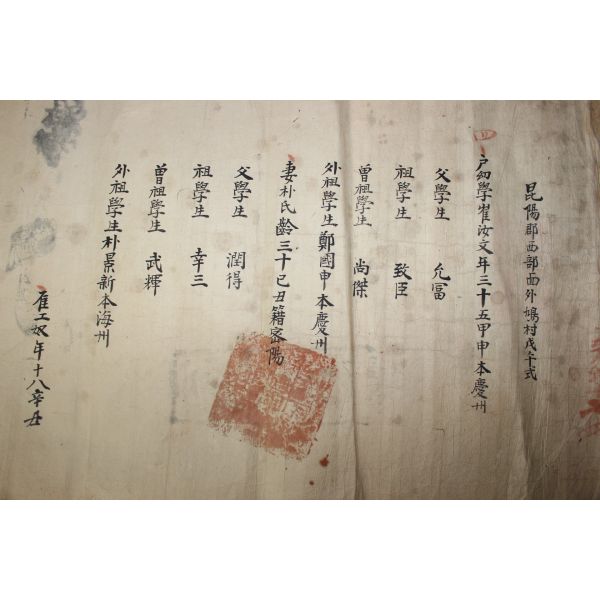 昆陽郡西部面外鳩村戊午式
戶幼學崔汝文年三十五甲申本慶州
父學生 允冨
祖學生 致臣
曾祖學生 尚傑
外祖學生鄭國申本慶州
妻朴氏齡三十己丑籍密陽
父學生 潤得
祖學生 幸三
曾祖學生 武輝
外祖學生朴景新本海州
雇工奴年十八辛丑